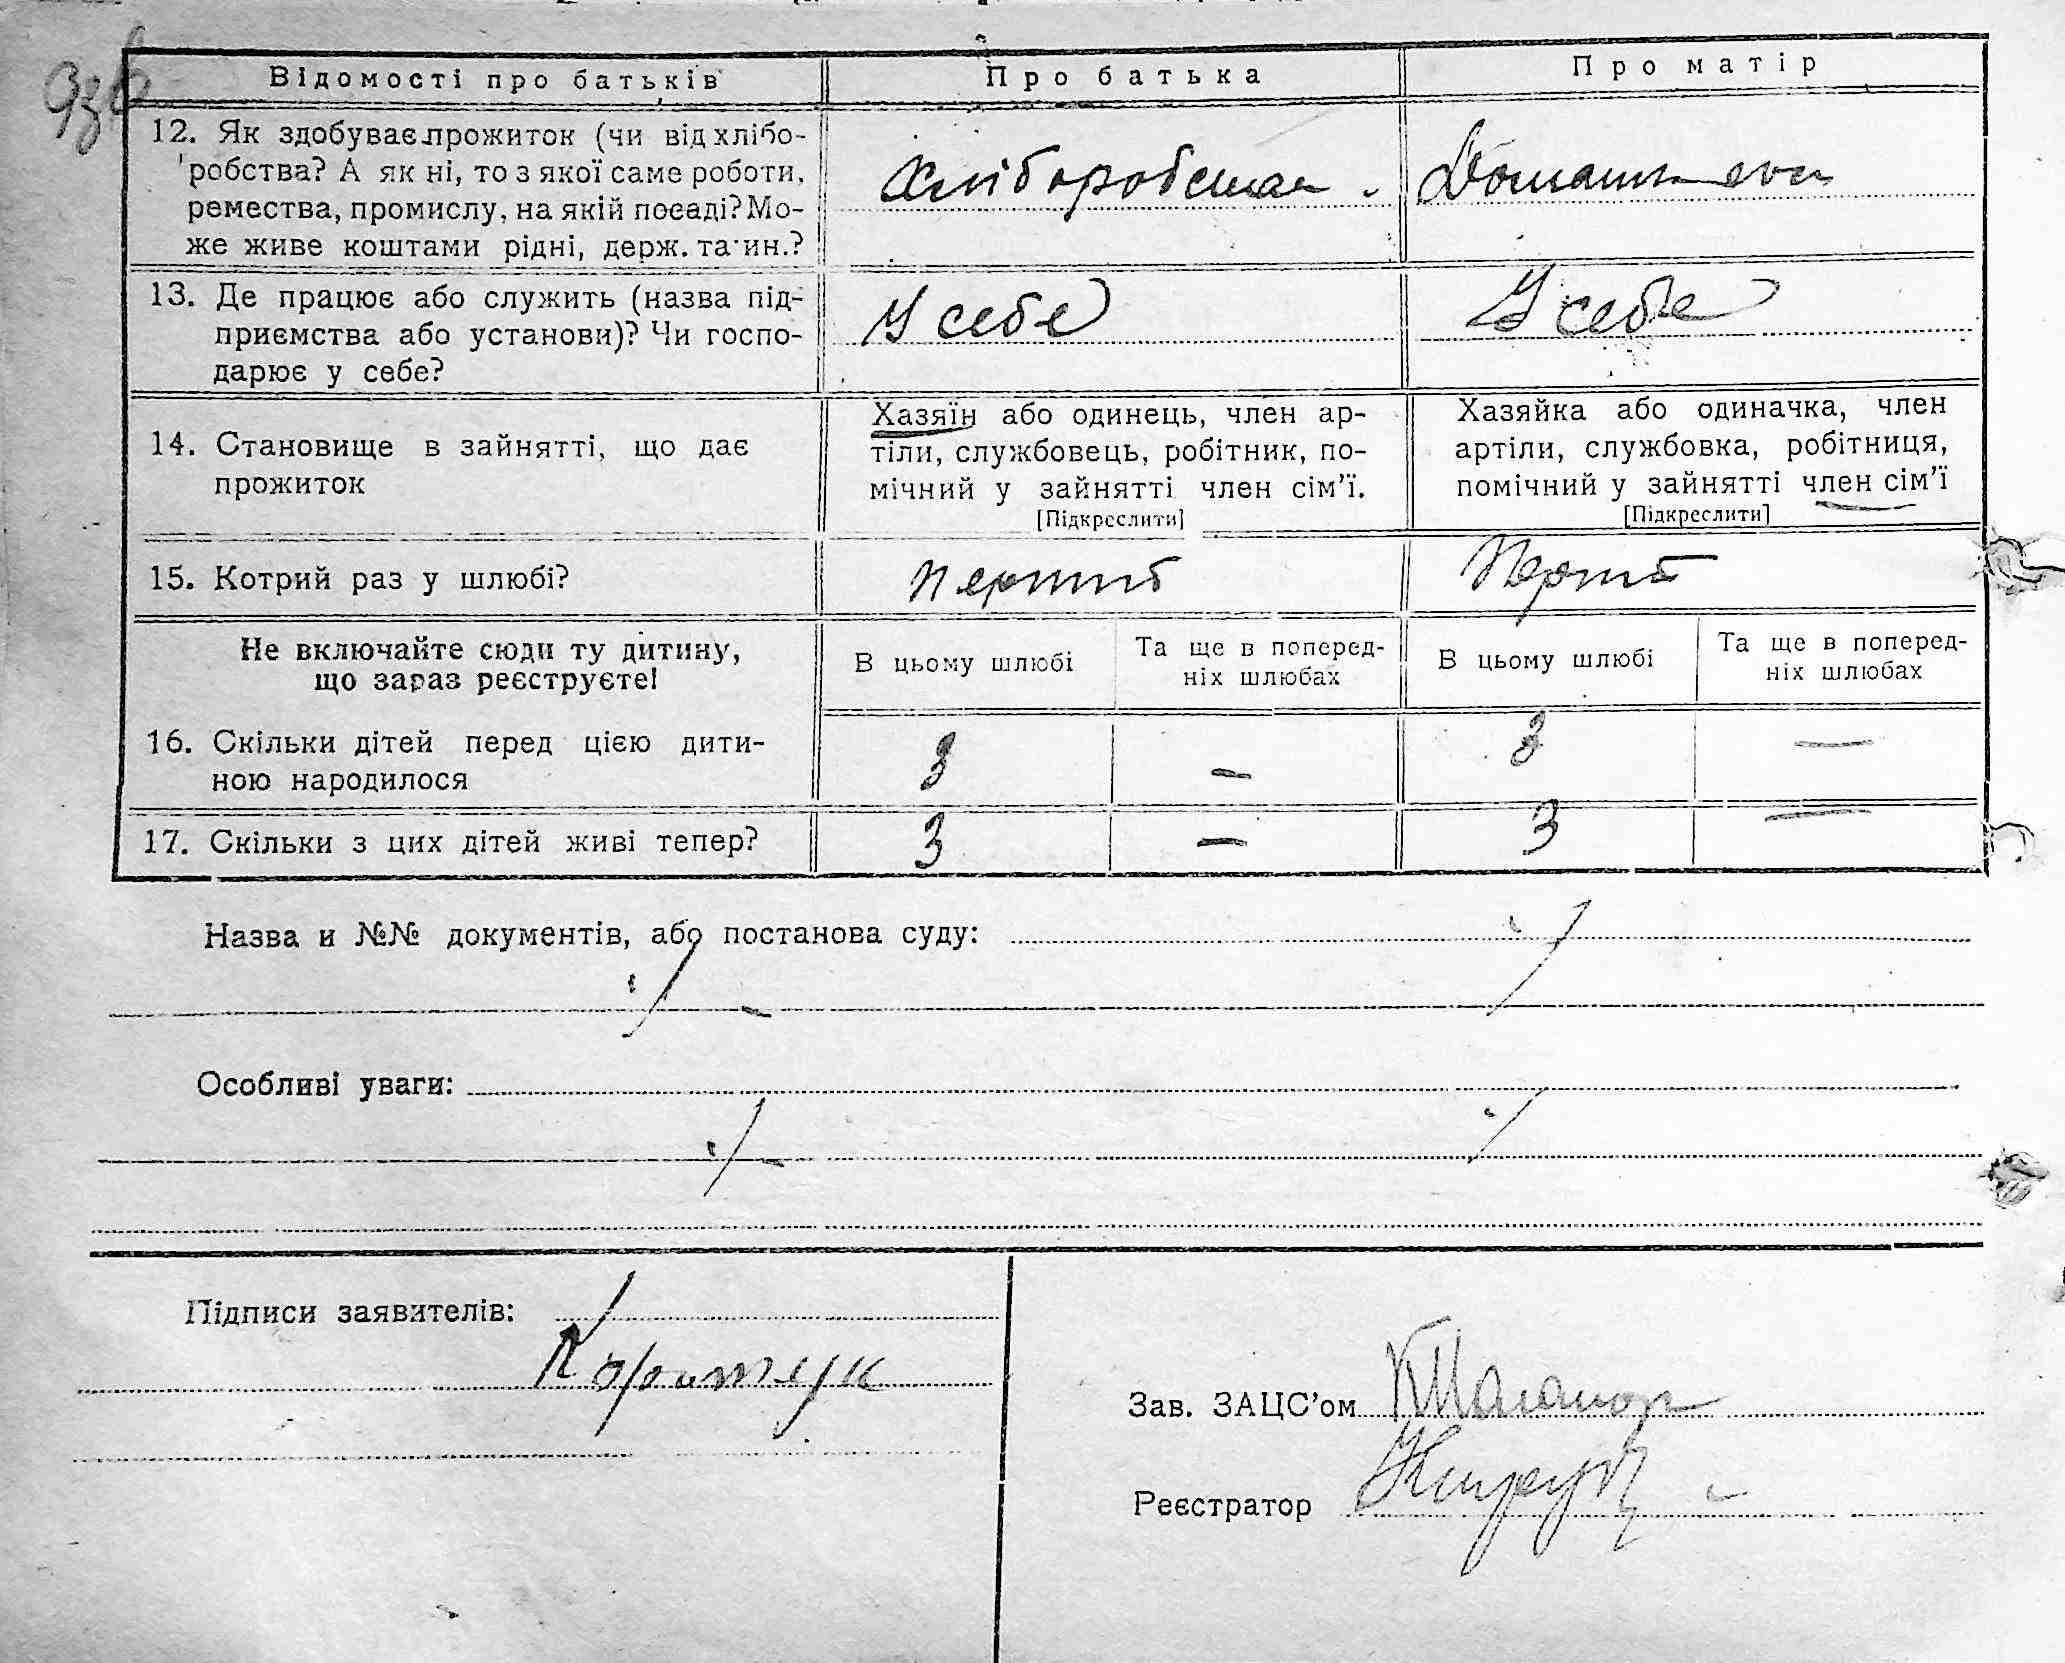 Відомості про батьків
Про батька
Про матір
12. Як здобуває прожиток (чи від хлібо-
робства? А як ні, то з якої саме роботи,
ремества, промислу, на якій посаді? Мо-
же живе коштами рідні, держ. та ин.?
Хліборобства
Домашня
13. Де працює або служить (назва під-
приємства або установи)? Чи госпо-
дарює у себе?
У себе
У себе
14. Становище в зайнятті, що дає
прожиток
Хазяїн або одинець, член ар-
тіли, службовець, робітник, по-
мічний у зайнятті член сім'ї.
[Підкреслити]
Хазяйка або одиначка, член
артіли, службовка, робітниця,
помічний у зайнятті член сім'ї
[Підкреслити]
15. Котрий раз у шлюбі?
Перший
Не включайте сюди ту дитину,
що зараз реєструєте!
В цьому шлюбі
Та ще в поперед-
ніх шлюбах
В цьому шлюбі
Та ще в поперед-
ніх шлюбах
16. Скільки дітей перед цією дити-
ною народилося
3 — 3 —
17. Скільки з цих дітей живі тепер?
3 — 3 —
Назва и №№ документів, або постанова суду:
Особливі уваги:
Підписи заявителів:
Зав. ЗАЦС'ом
Реєстратор